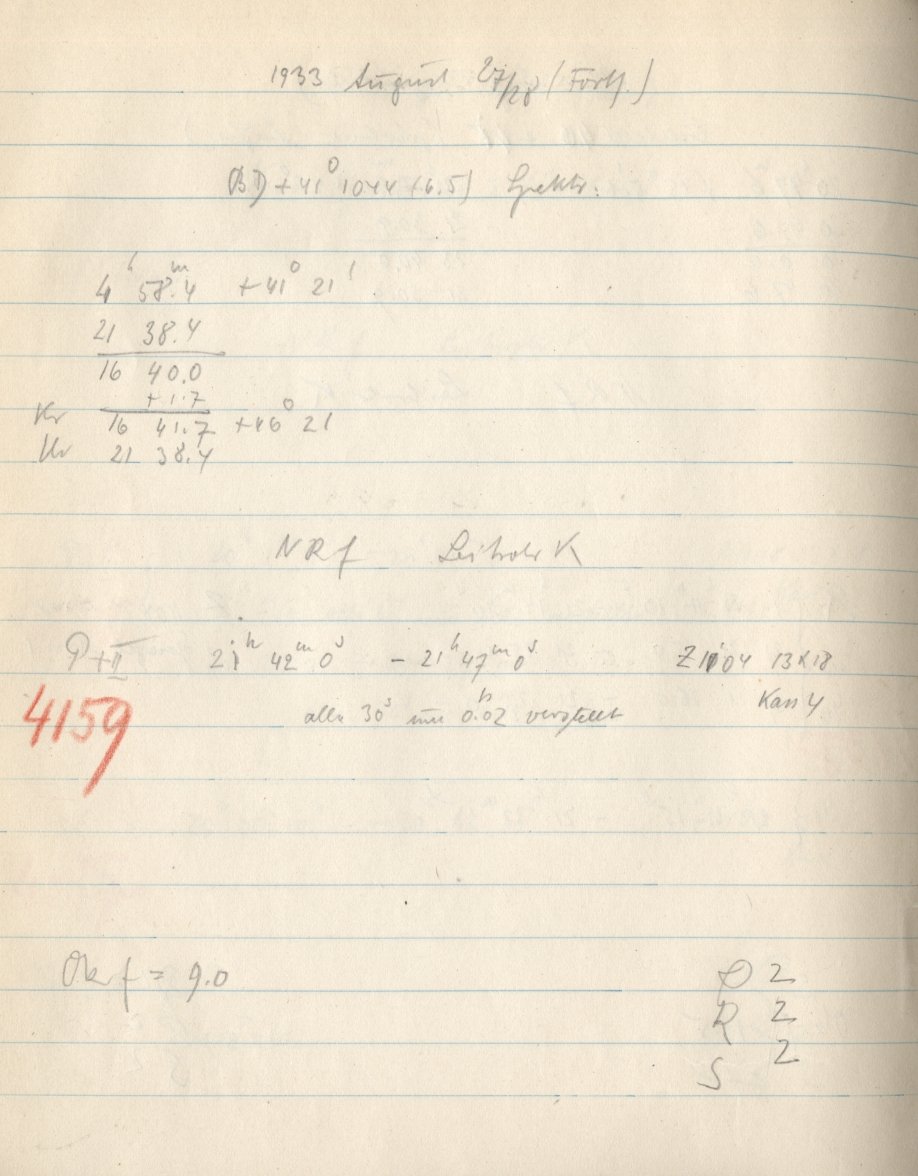 1933 August 27/28 (Forts.)
BD +41° 1044 (6.5) Spektr.
4ʰ 58ᵐ.4 +41° 21'
21 38.4
16 40.0
+1.7
Kr 16 41.7 +46° 21
Ur 21 38.4
NRf Leitrohr K
P+II 21ʰ 42ᵐ 0ˢ – 21ʰ 47ᵐ 0ˢ Z 1104 13x18
4159 alle 30ˢ um 0.02 verstellt Kass 4
Ok f = 9.0
D 2
R 2
S 2